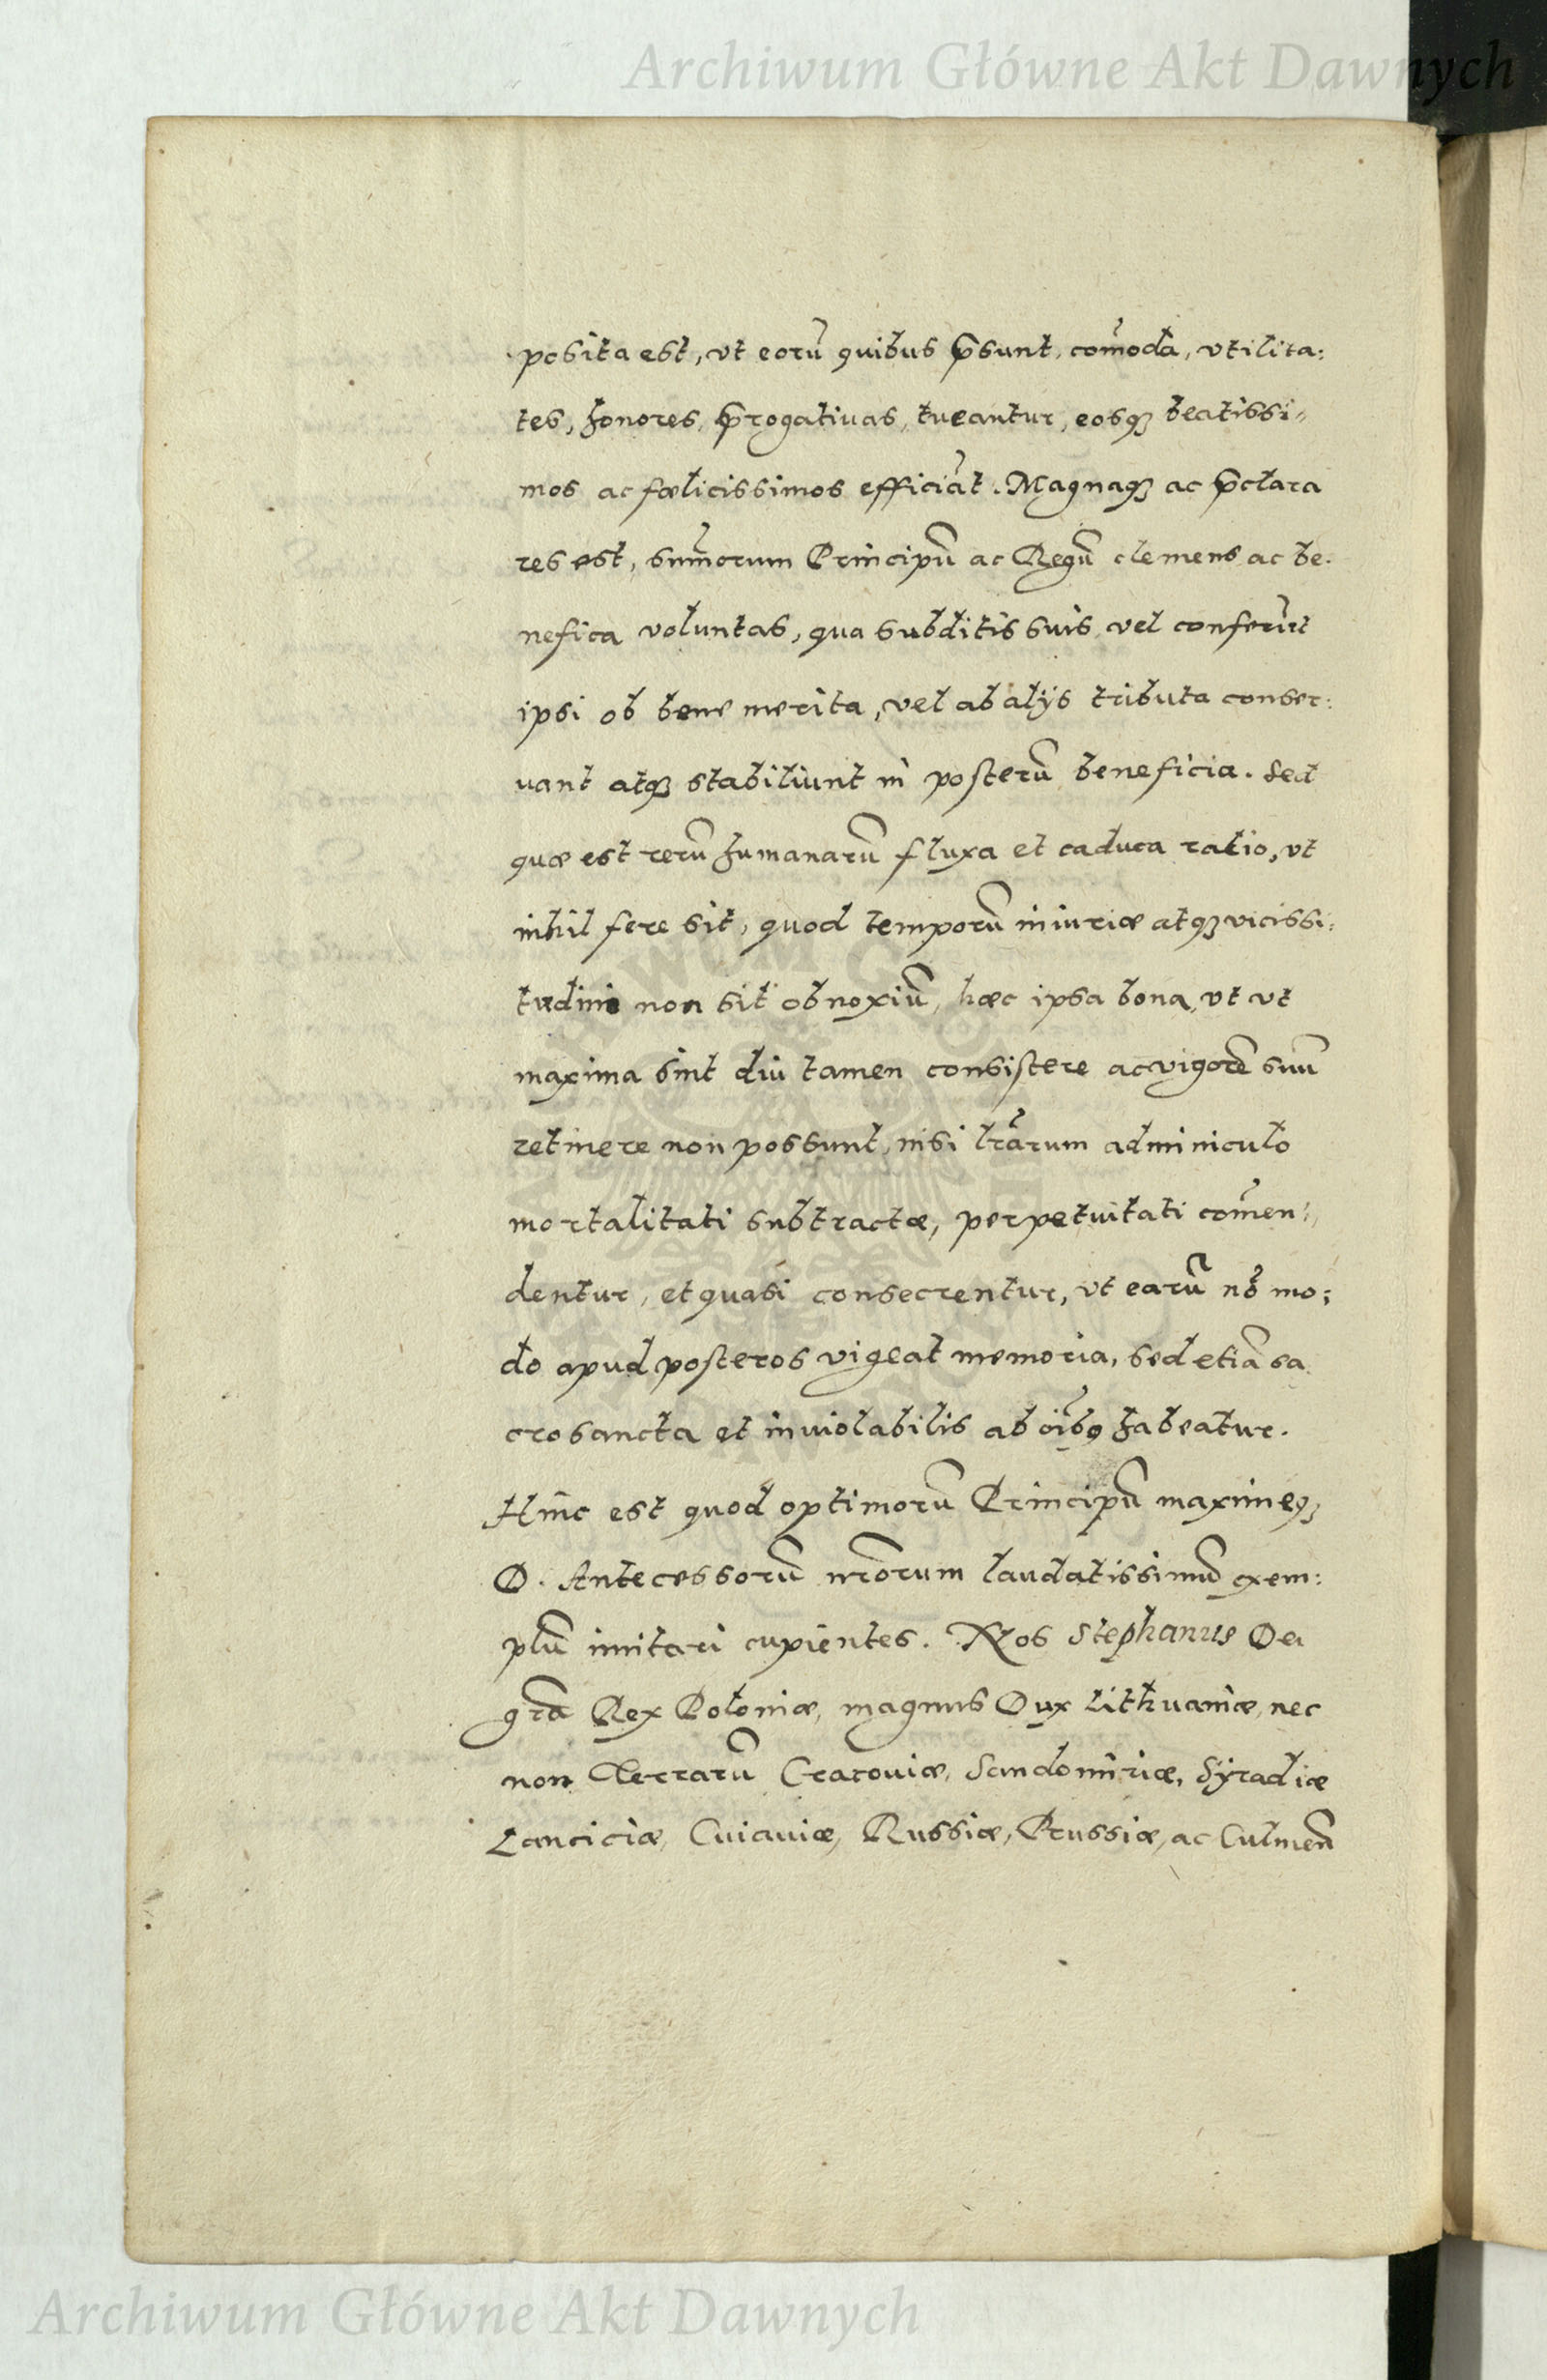 Archiwum Główne Akt Dawnych
posita est, vt eorū quibus p̄sunt, com̄oda, vtilita:
tes, honores, p̄rogatiuas, tueantur, eosqꝫ beatissi=
mos ac fœlicissimos efficiāt. Magnaqꝫ ac p̄clara
res est, sum̄orum Principū ac Regū clemens ac be:
nefica voluntas, qua subditis suis vel conferūt
ipsi ob bene merita, vel ab alijs tributa conser:
uant atqꝫ stabiliunt in posterū beneficia. Sed
quæ est rerū humanarū fluxa et caduca ratio, vt
nihil fere sit, quod temporū iniuriæ atqꝫ vicissi:
tudini non sit obnoxiū, hæc ipsa bona, vt vt
maxima sint diu tamen consistere ac vigorē suū
retinere non possunt, nisi lr̄arum adminiculo
mortalitati subtractæ, perpetuitati com̄en:
dentur, et quasi consecrentur, vt earū nō mo:
do apud posteros vigeat memoria, sed etiā sa
crosancta et inuiolabilis ab oībꝯ habeatur.
Hinc est quod optimorū Principū maximeqꝫ
D. Antecessorū nr̄orum laudatissimū exem:
plū imitari cupientes. Nos Stephanus Dei
gr̄a Rex Poloniæ, magnus Dux Lithuaniæ, nec
non Terrarū Cracouiæ, Sandomiriæ, Syradiæ
Lanciciæ, Cuiauiæ, Russiæ, Prussiæ, ac Culmen̄
Archiwum Główne Akt Dawnych